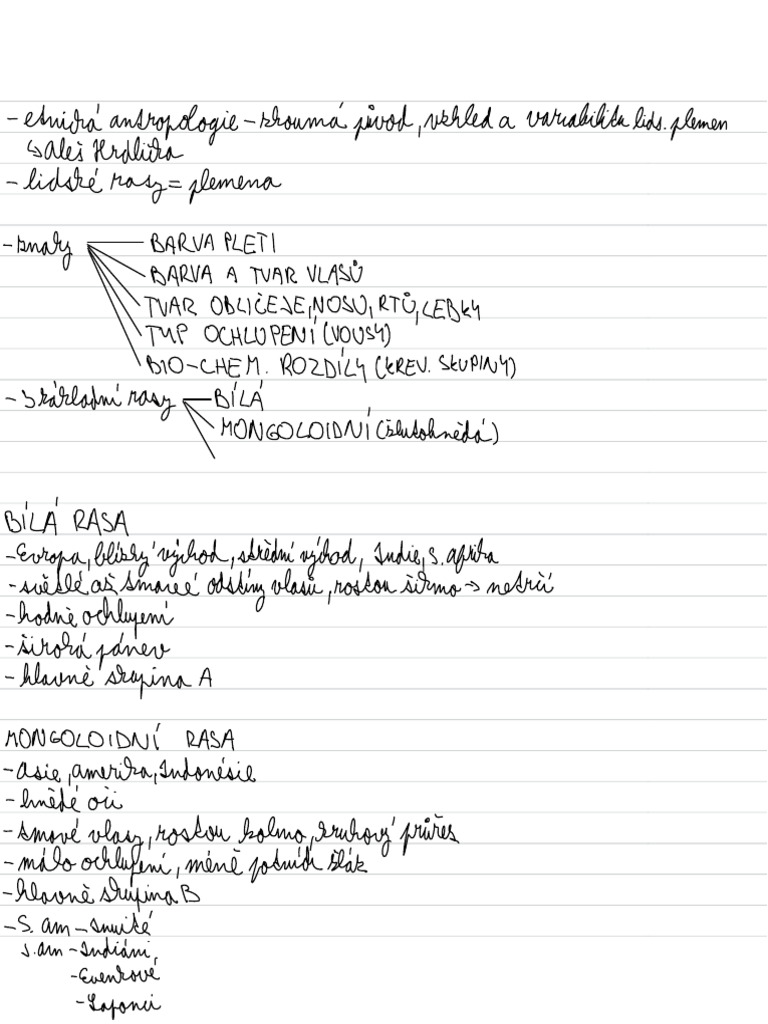 - etnická antropologie - zkoumá původ, vzhled a variabilitu lids. plemen
↳ Aleš Hrdlička
- lidské rasy = plemena
- znaky BARVA PLETI
BARVA A TVAR VLASŮ
TVAR OBLIČEJE, NOSU, RTŮ, LEBKY
TYP OCHLUPENÍ (VOUSY)
BIO-CHEM. ROZDÍLY (KREV. SKUPINY)
- 3 základní rasy BÍLÁ
MONGOLOIDNÍ (žlutohnědá)
BÍLÁ RASA
- Evropa, blízký východ, střední východ, Indie, S. afrika
- světlé až tmavé odstíny vlasů, rostou šikmo →
- hodně ochlupení
- široká pánev
- hlavně skupina A
MONGOLOIDNÍ RASA
- Asie, amerika, Indonésie
- hnědé oči
- tmavé vlasy, rostou kolmo, kruhový průřez
- málo ochlupení, méně potních žláz
- hlavně skupina B
- S. am - Inuité
J. am - Indiáni,
- Evenkové
- Laponci